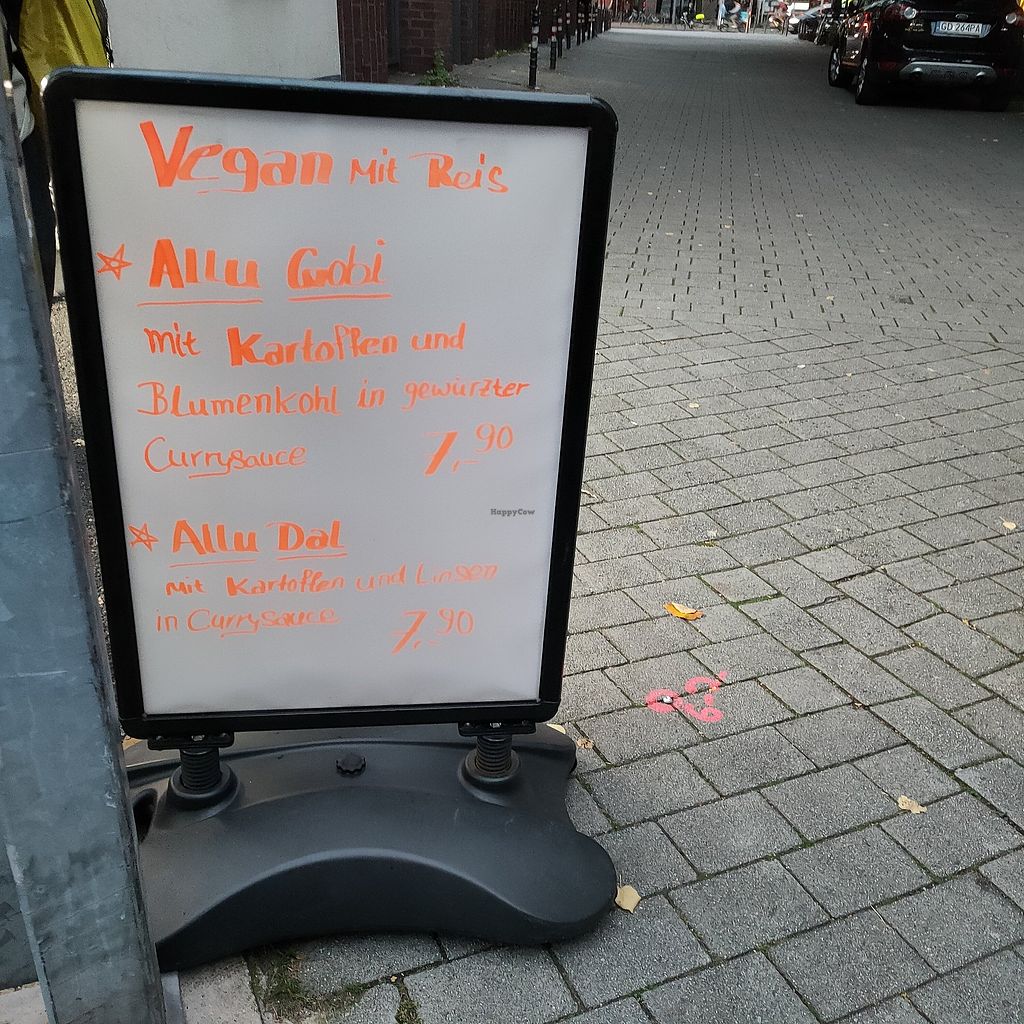 Vegan mit Reis
Allu Gobi
mit Kartoffen und
Blumenkohl in gewürzter
Currysauce 7,90
HappyCow
Allu Dal
mit Kartoffen und Linsen
in Currysauce 7,90
GD 264PA